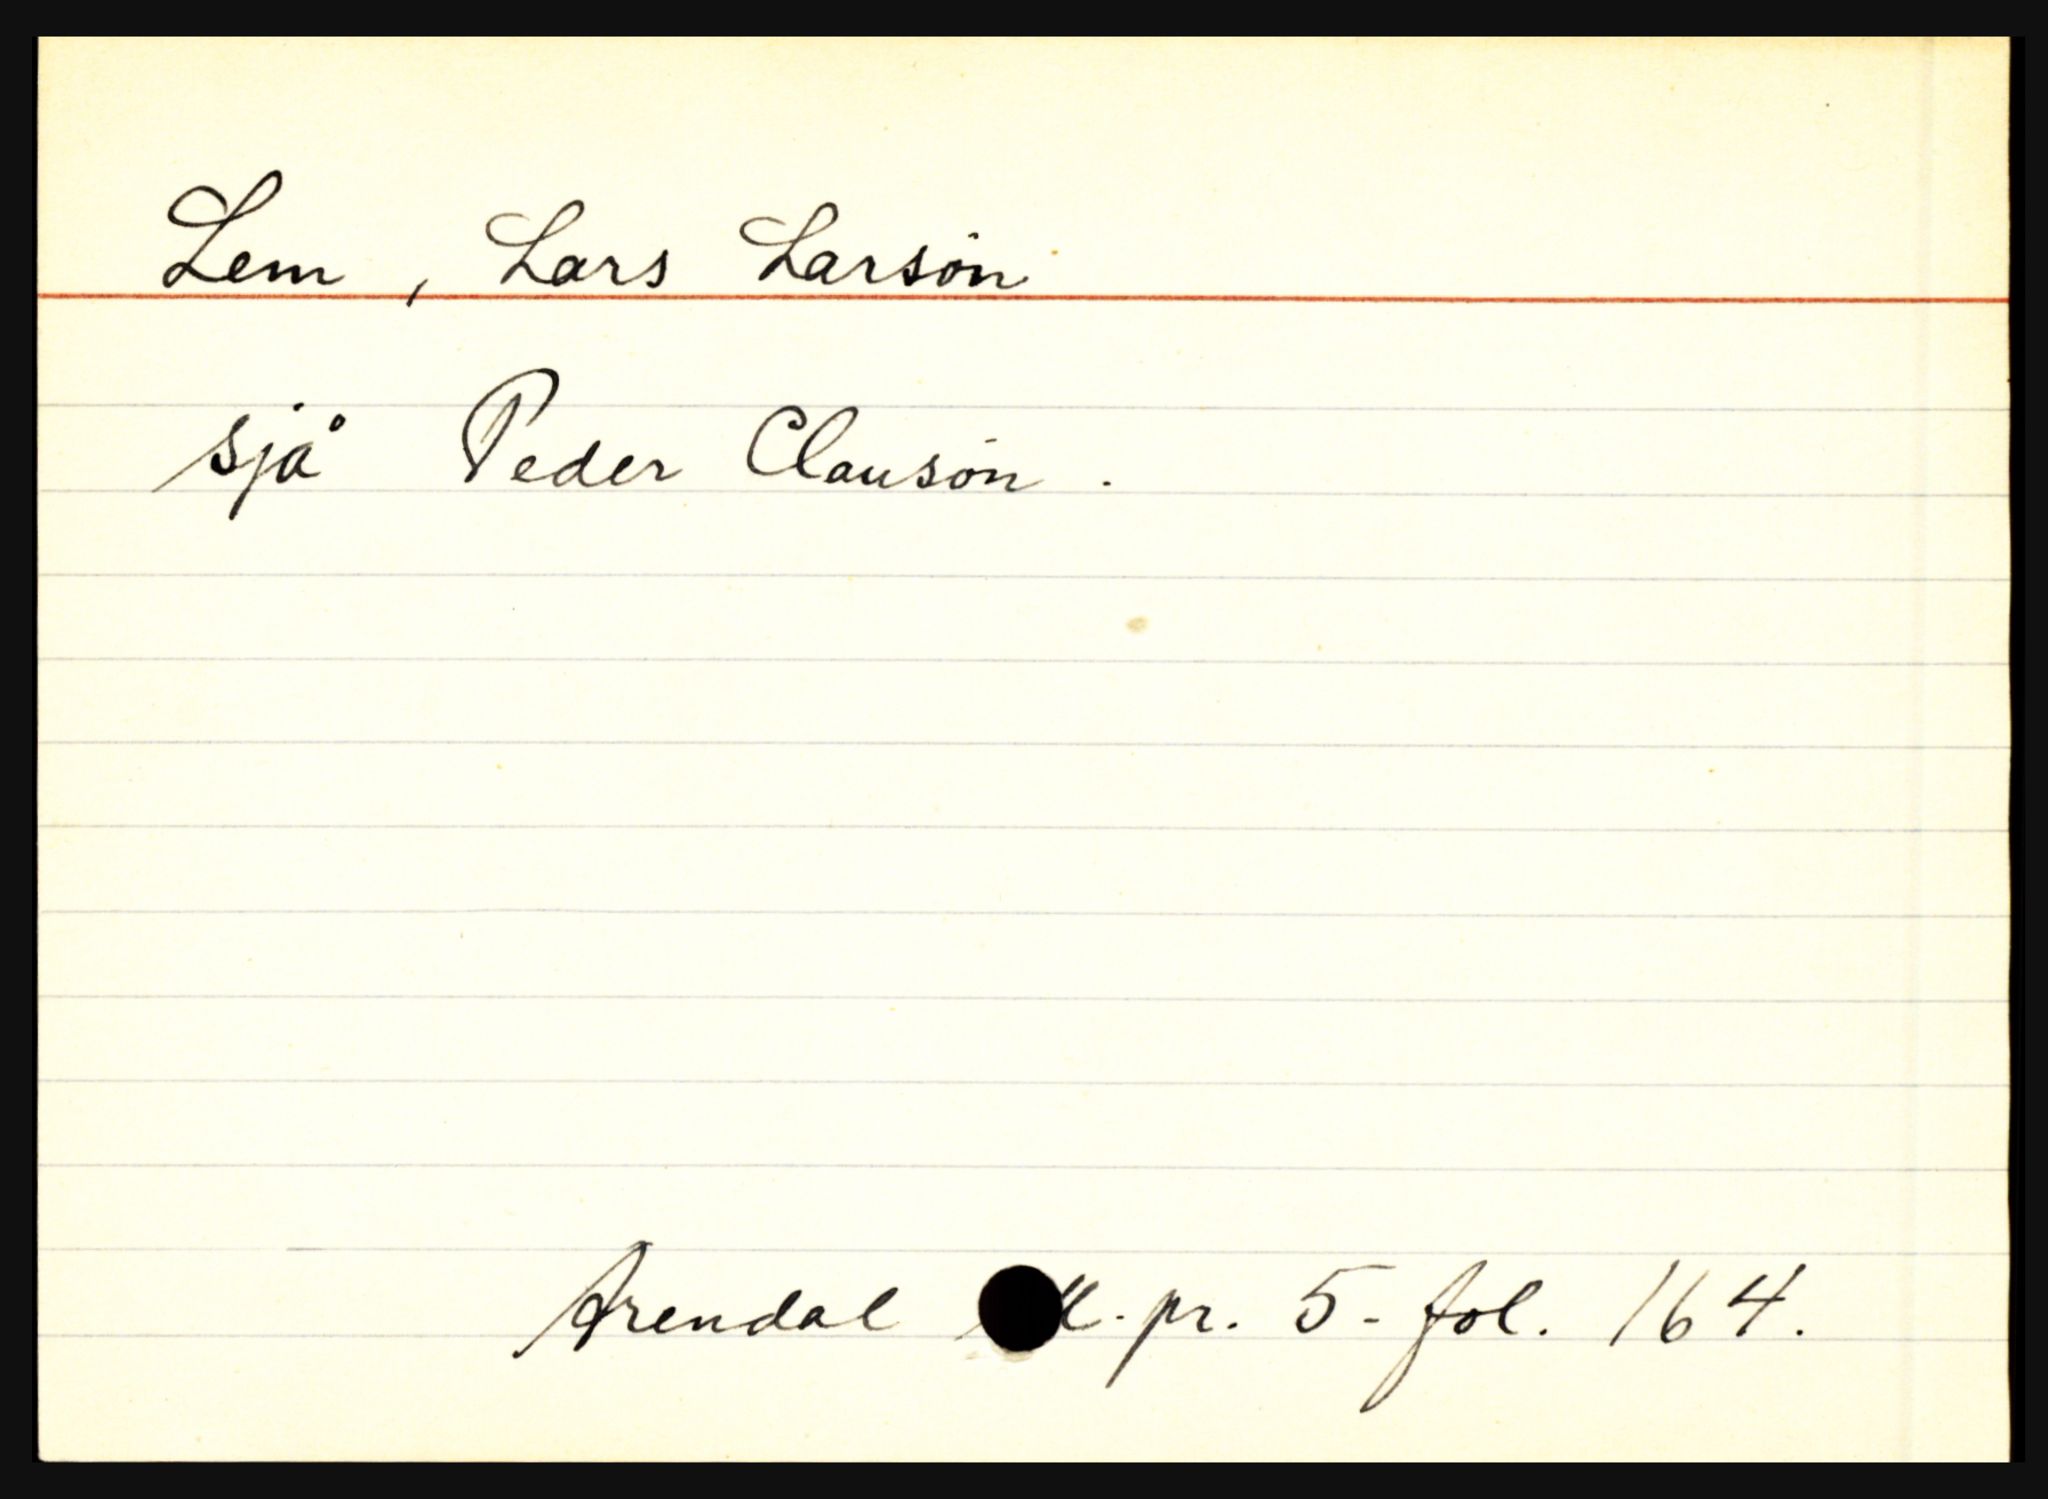 Lem, Lars Larsøn
sjå Peder Clausøn.
Arendal pr. 5 - fol. 164.